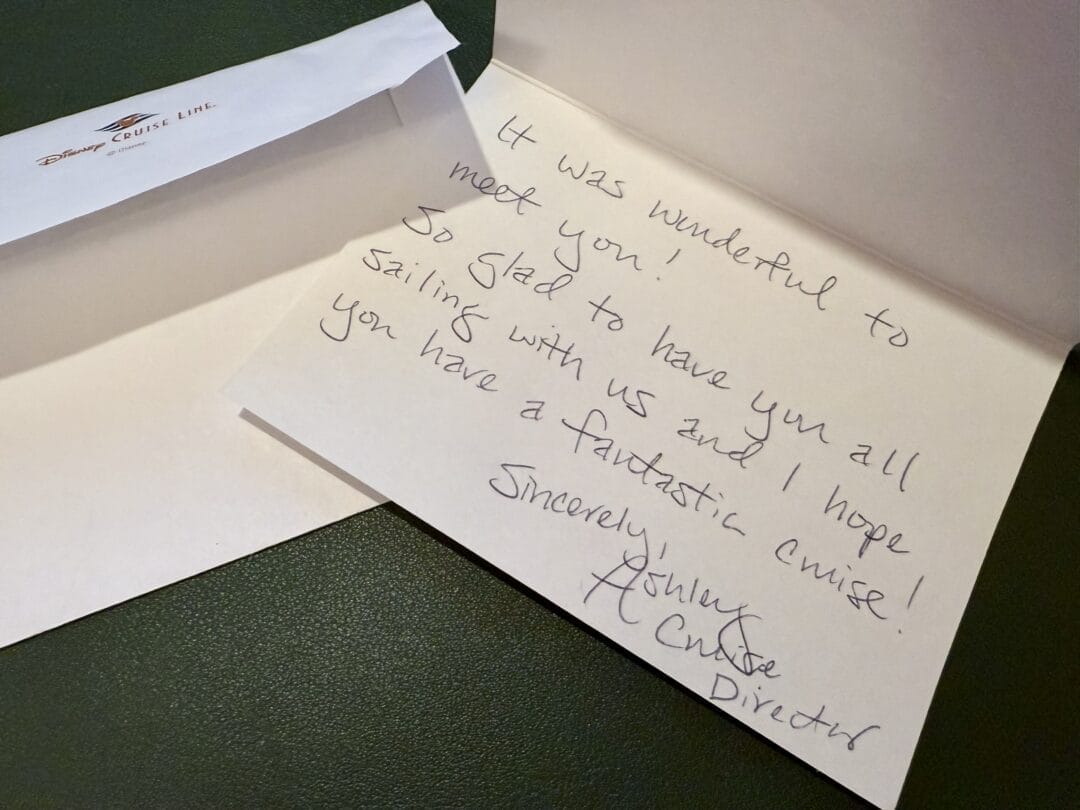 Disney Cruise Line
© Disney
It was wonderful to
meet you!
So glad to have you all
sailing with us and I hope
you have a fantastic cruise!
Sincerely,
Ashley
Cruise
Director